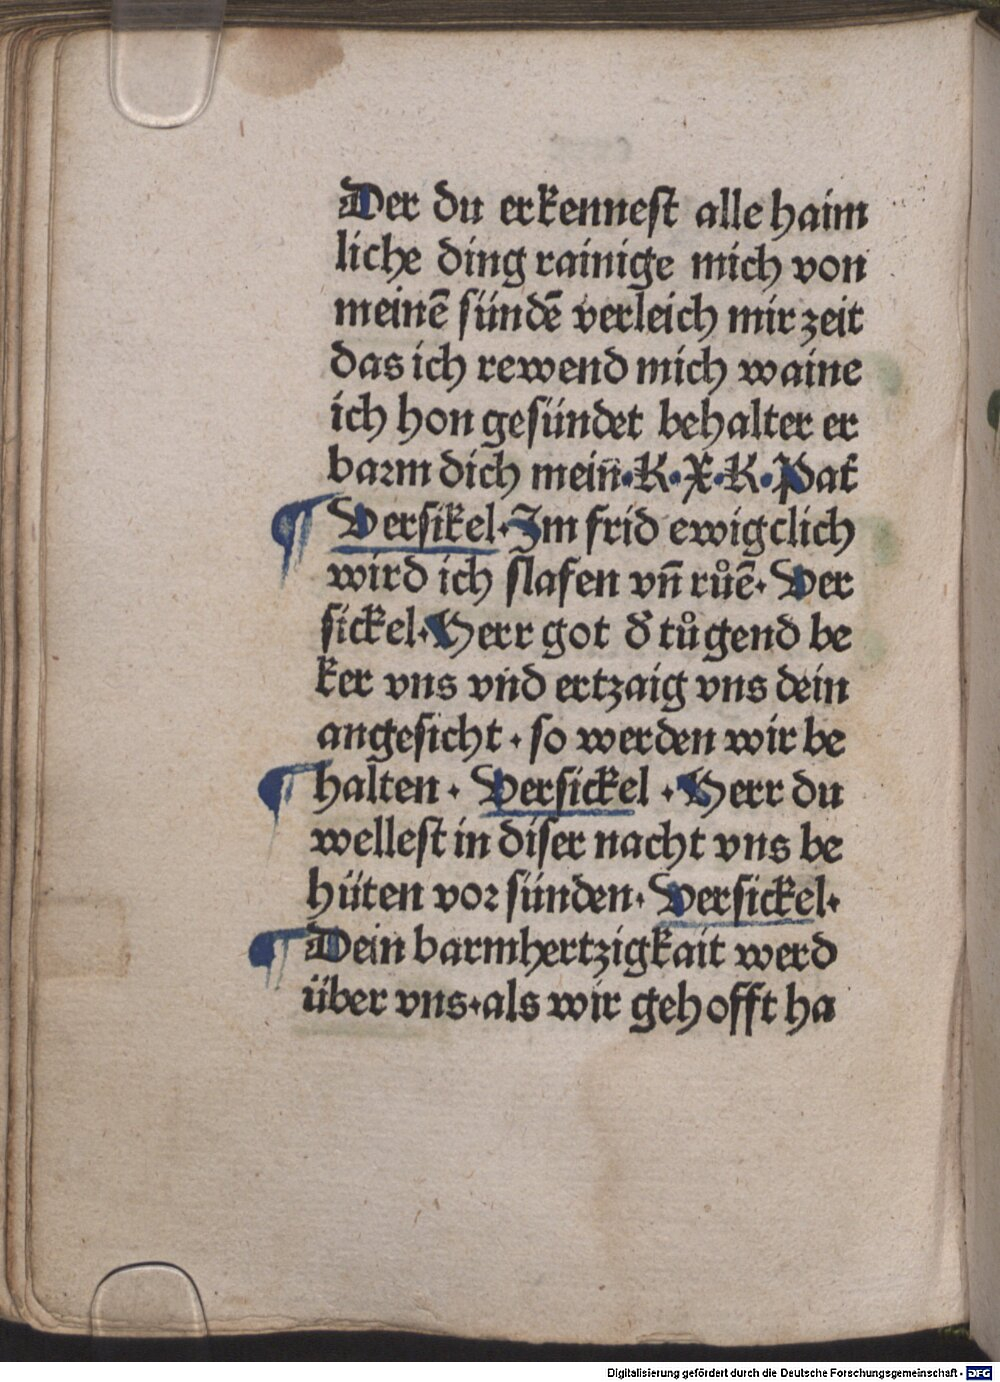 Der du erkennest alle haim
liche ding rainige mich von
meinē sündē verleich mir zeit
das ich rewend mich waine
ich hon gesündet behalter er
barm dich mein̄·K·X·K·Pať
¶ Versikel·Im frid ewigclich
wird ich slafen vn̄ růē· Ver
sickel·Herr got d̕ tůgend be
ker vns vnd ertzaig vns dein
angesicht · so werden wir be
¶ halten · Versickel · Herr du
wellest in diser nacht vns be
hüten vor sünden· Versickel·
¶ Dein barmhertzigkait werd
über vns·als wir gehofft ha
Digitalisierung gefördert durch die Deutsche Forschungsgemeinschaft - DFG